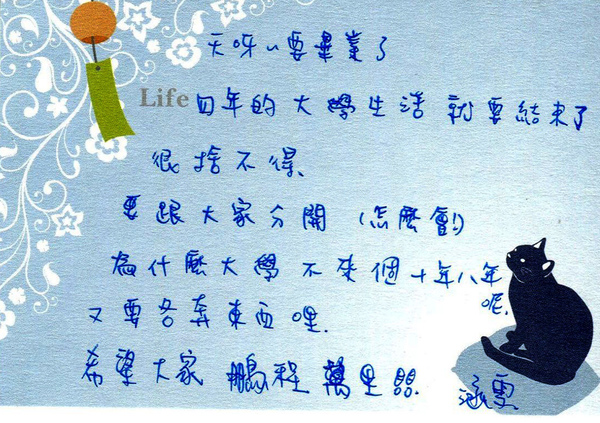 天呀~要畢業了
Life 四年的大學生活就要結束了
很捨不得、
要跟大家分開(怎麼會)
為什麼大學不來個十年八年呢.
又要各奔東西哩.
希望大家鵬程萬里
涵雯